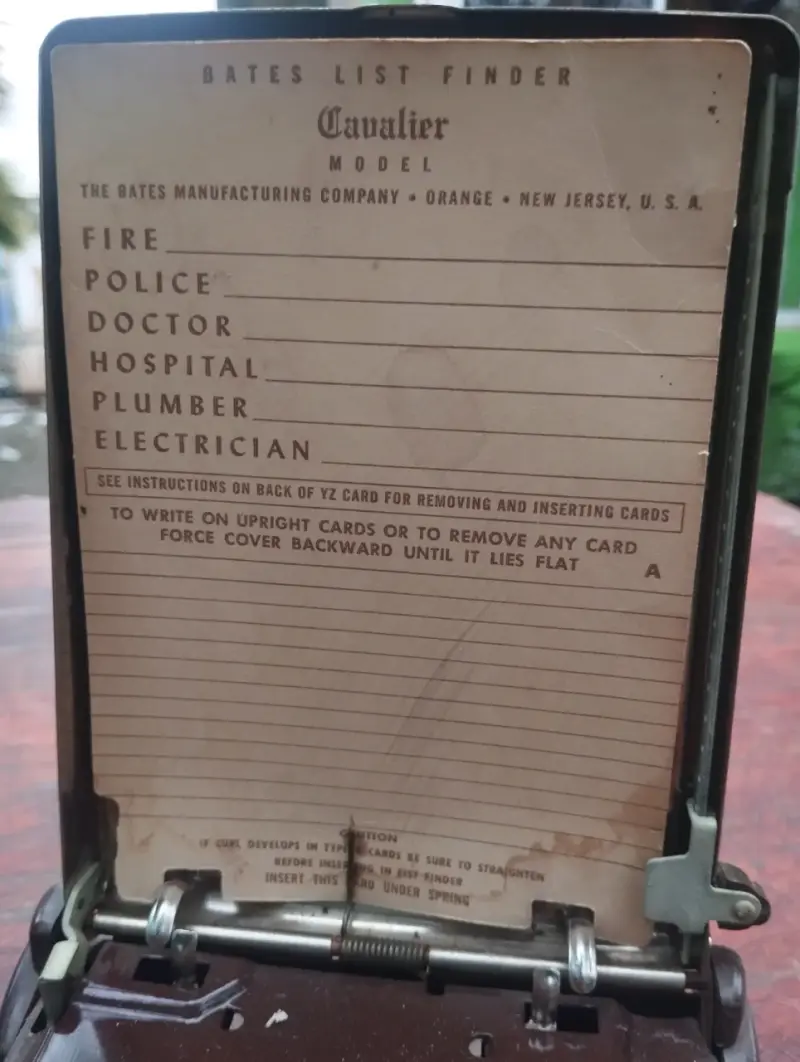 BATES LIST FINDER
Cavalier
MODEL
THE BATES MANUFACTURING COMPANY • ORANGE • NEW JERSEY, U. S. A.
FIRE
POLICE
DOCTOR
HOSPITAL
PLUMBER
ELECTRICIAN
SEE INSTRUCTIONS ON BACK OF YZ CARD FOR REMOVING AND INSERTING CARDS
TO WRITE ON UPRIGHT CARDS OR TO REMOVE ANY CARD
FORCE COVER BACKWARD UNTIL IT LIES FLAT
A
CAUTION
IF CURL DEVELOPS IN CARDS BE SURE TO STRAIGHTEN
BEFORE INSERTING IN LIST FINDER
INSERT THIS CARD UNDER SPRING